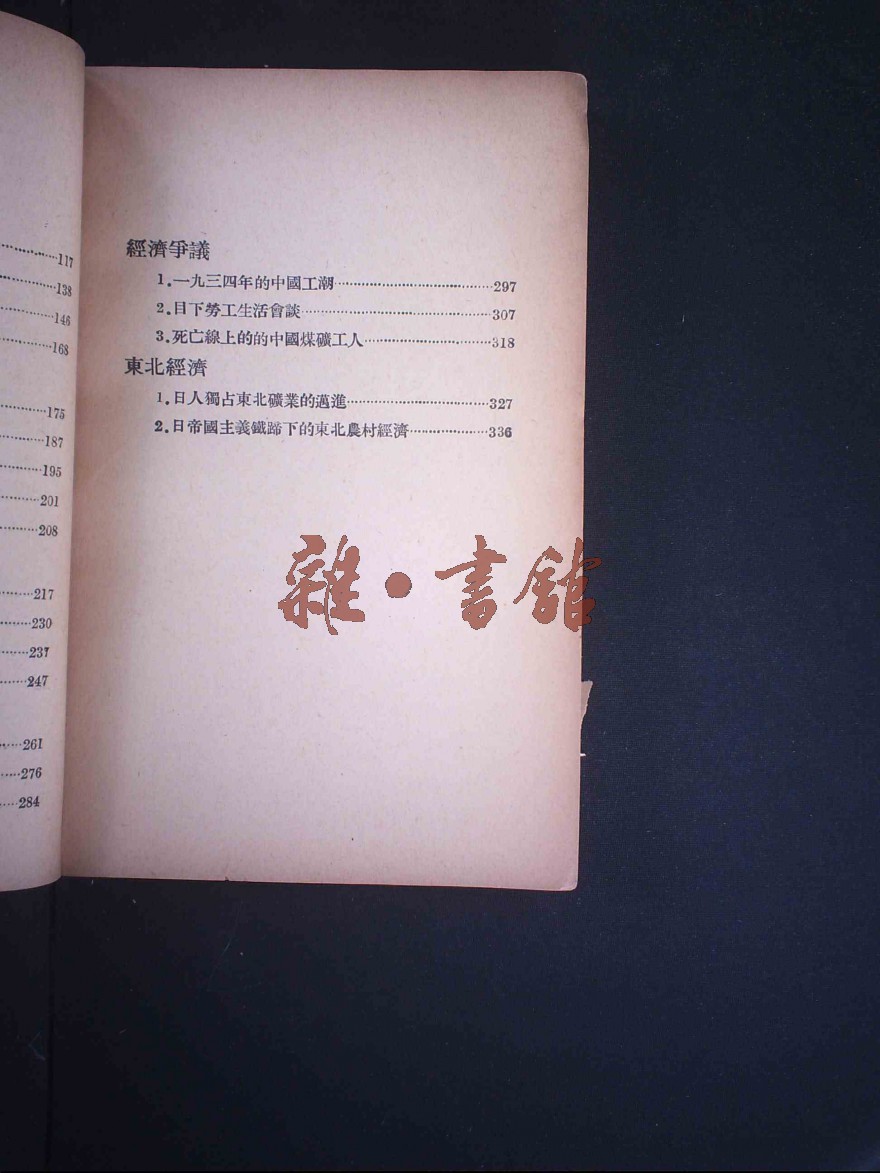 ……117
……138
……146
……168
……175
……187
……195
……201
……208
……217
……230
……237
……247
……261
……276
……284
經濟爭議
1.一九三四年的中國工潮……297
2.目下勞工生活會談……307
3.死亡線上的的中國煤礦工人……318
東北經濟
1.日人獨占東北礦業的邁進……327
2.日帝國主義鐵蹄下的東北農村經濟……336
雜·書館